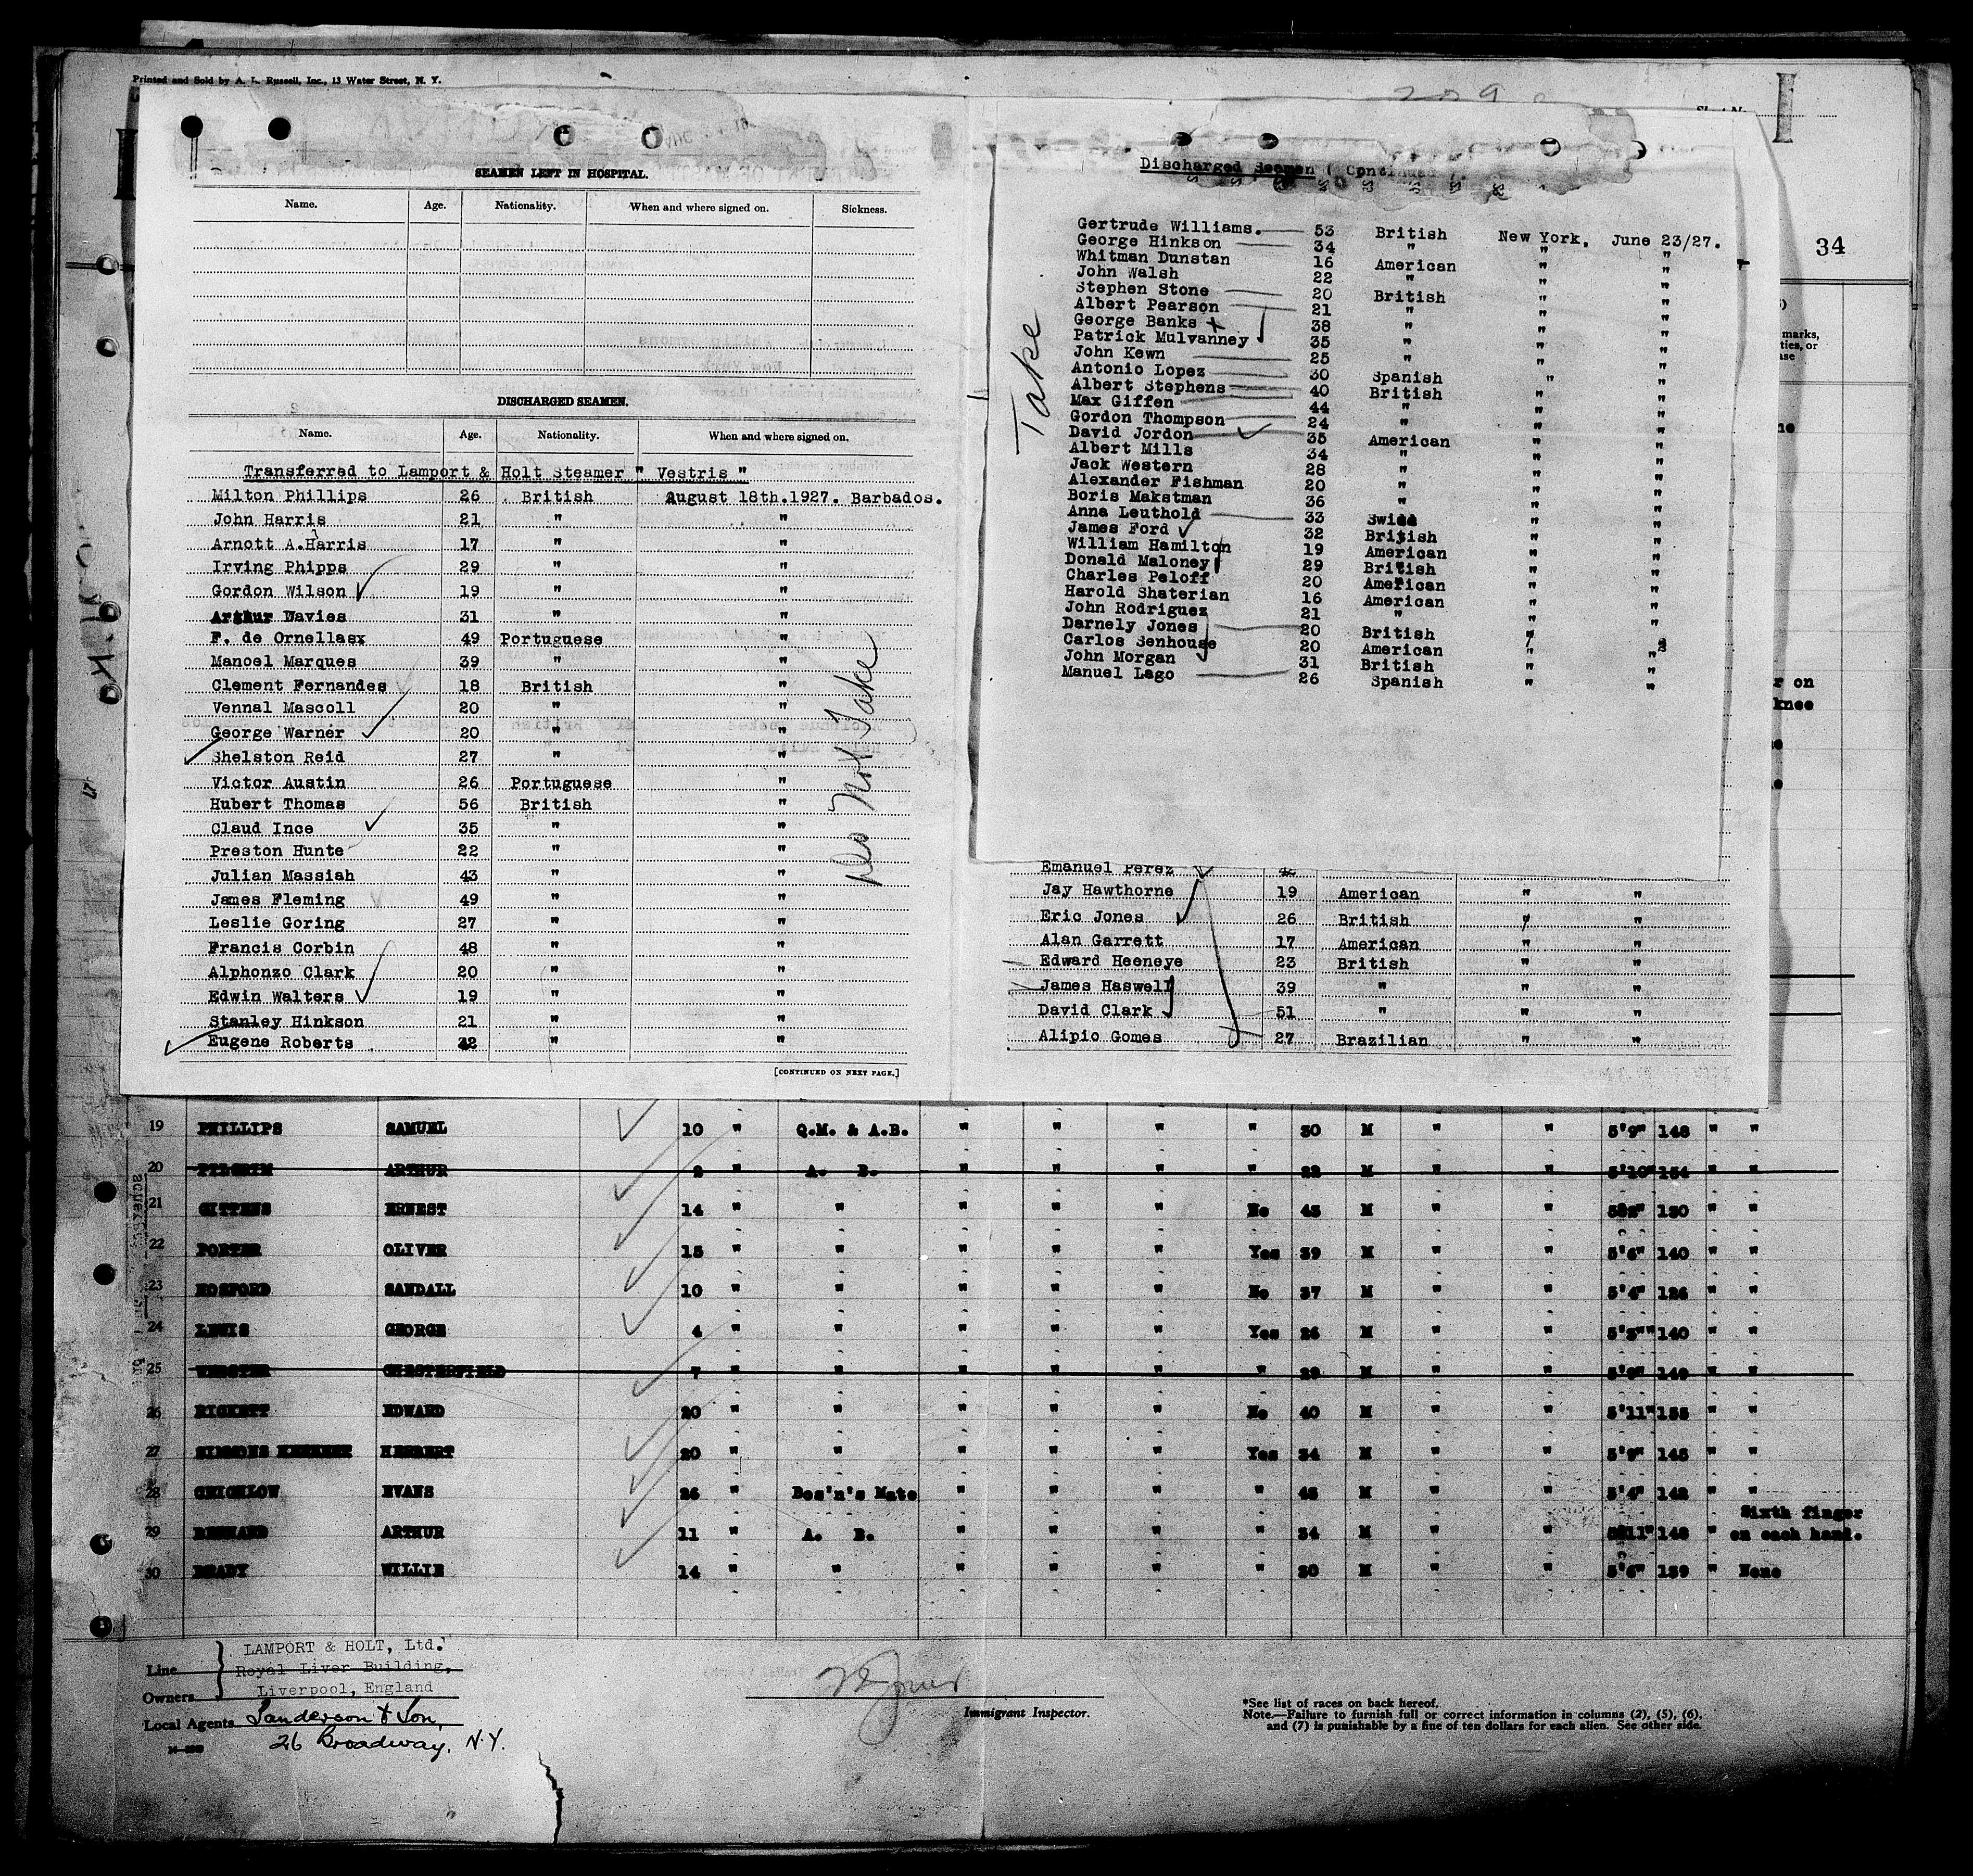 Printed and Sold by A. L. Russell, Inc., 13 Water Street, N. Y.
SEAMEN LEFT IN HOSPITAL.
Name. Age. Nationality. When and where signed on. Sickness.
DISCHARGED SEAMEN.
Name. Age. Nationality. When and where signed on.
Transferred to Lamport & Holt Steamer " Vestris "
Milton Phillips 26 British August 18th.1927. Barbados.
John Harris 21 " "
Arnott A.Harris 17 " "
Irving Phipps 29 " "
Gordon Wilson 19 " "
Arthur Davies 31 " "
F. de Ornellasx 49 Portuguese "
Manoel Marques 39 " "
Clement Fernandes 18 British "
Vennal Mascoll 20 " "
George Warner 20 " "
Shelston Reid 27 " "
Victor Austin 26 Portuguese "
Hubert Thomas 56 British "
Claud Ince 35 " "
Preston Hunte 22 " "
Julian Massiah 43 " "
James Fleming 49 " "
Leslie Goring 27 " "
Francis Corbin 48 " "
Alphonzo Clark 20 " "
Edwin Walters 19 " "
Stanley Hinkson 21 " "
Eugene Roberts 32 " "
Do Not Take
[CONTINUED ON NEXT PAGE.]
Discharged Seamen ( Continued
Take
Gertrude Williams. 53 British New York, June 23/27.
George Hinkson 34 " " "
Whitman Dunstan 16 American " "
John Walsh 22 " " "
Stephen Stone 20 British " "
Albert Pearson 21 " " "
George Banks 38 " " "
Patrick Mulvanney 35 " " "
John Kewn 25 " " "
Antonio Lopez 30 Spanish " "
Albert Stephens 40 British " "
Max Giffen 44 " " "
Gordon Thompson 24 " " "
David Jordon 35 American " "
Albert Mills 34 " " "
Jack Western 28 " " "
Alexander Fishman 20 " " "
Boris Makstman 36 " " "
Anna Leuthold 33 Swiss " "
James Ford 32 British " "
William Hamilton 19 American " "
Donald Maloney 29 British " "
Charles Peloff 20 American " "
Harold Shaterian 16 American " "
John Rodriguez 21 " " "
Darnely Jones 20 British " "
Carlos Senhouse 20 American " "
John Morgan 31 British " "
Manuel Lago 26 Spanish " "
34
marks,
ties, or
ase
r on
knee
Emanuel Perez
Jay Hawthorne 19 American " "
Eric Jones 26 British " "
Alan Garrett 17 American " "
Edward Heeneye 23 British " "
James Haswell 39 " " "
David Clark 51 " " "
Alipio Gomes 27 Brazilian " "
19 PHILLIPS SAMUEL 10 " Q.M. & A.B. " " " " 30 M " " 5'9" 148 " "
20 PILGRIM ARTHUR 2 " A. B. " " " " 22 M " " 5'10" 154 " "
21 GITTENS ERNEST 14 " " " " " No 43 M " " 130 " "
22 PORTER OLIVER 15 " " " " " Yes 39 M " " 5'6" 140 " "
23 HOSFORD SANDALL 10 " " " " " No 37 M " " 5'4" 126 " "
24 LEWIS GEORGE 4 " " " " " Yes 26 M " " 140 " "
25 WEBSTER CHESTERFIELD 7 " " " " " " 29 M " " 149 " "
26 RICKETT EDWARD 20 " " " " " No 40 M " " 5'11" 155 " "
27 SIMMONS HERBERT 20 " " " " " Yes 34 M " " 5'9" 145 " "
28 CRICHLOW EVANS 26 " Bos'n's Mate " " " " 45 M " " 5'4" 142 " "
29 ARTHUR 11 " A. B. " " " " 34 M " " 148 " Sixth finger
on each hand.
30 BRADY WILLIE 14 " " " " " " 30 M " " 5'6" 139 " None
Line LAMPORT & HOLT, Ltd.
Royal Liver Building,
Owners Liverpool, England
Local Agents Sanderson & Son,
26 Broadway, N.Y.
Immigrant Inspector.
*See list of races on back hereof.
Note.—Failure to furnish full or correct information in columns (2), (5), (6),
and (7) is punishable by a fine of ten dollars for each alien. See other side.